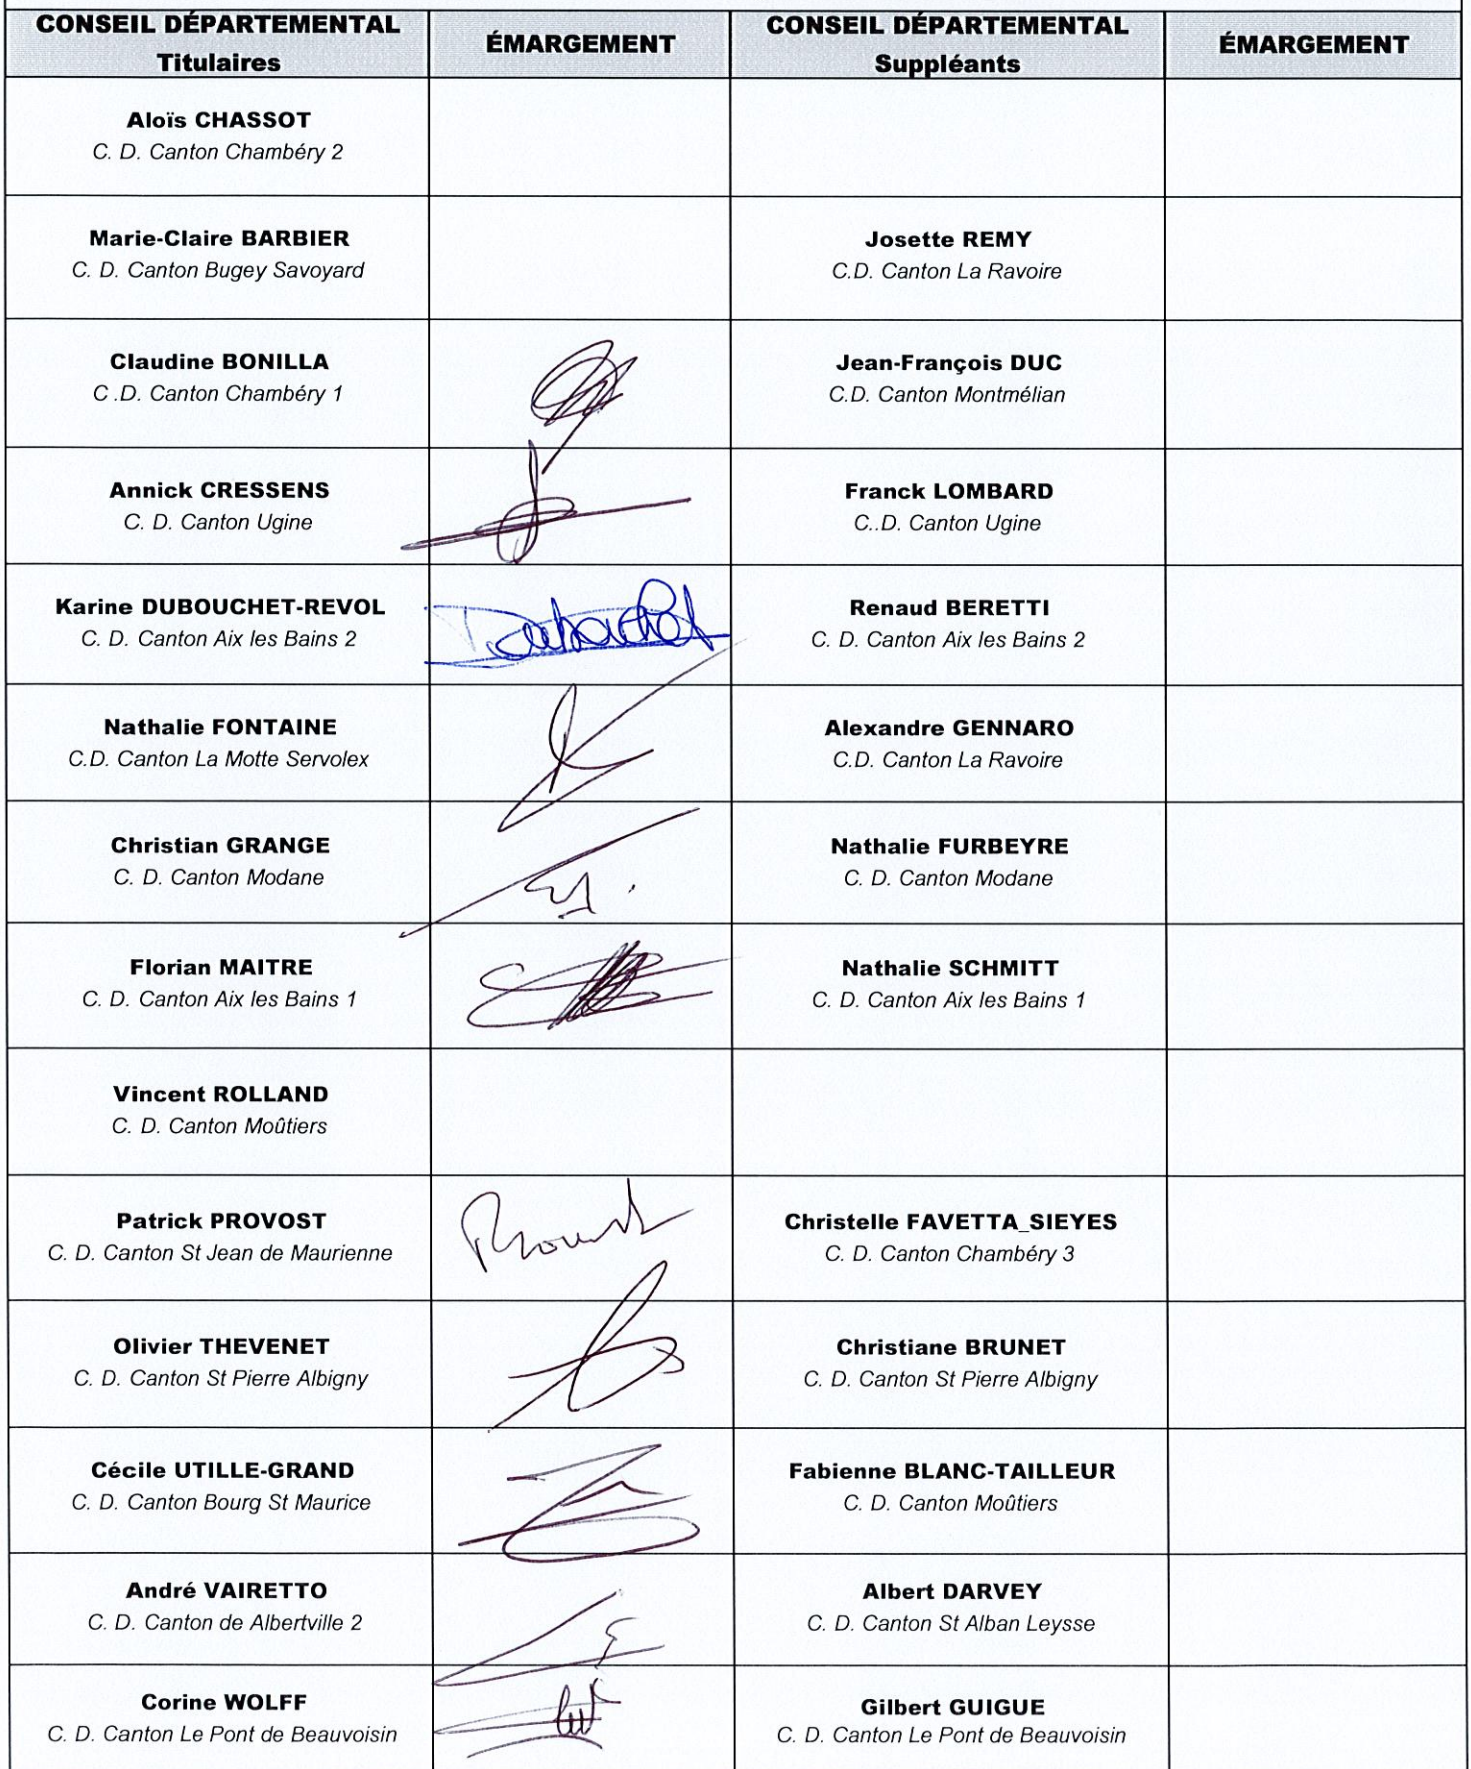 CONSEIL DÉPARTEMENTAL
Titulaires
ÉMARGEMENT
CONSEIL DÉPARTEMENTAL
Suppléants
ÉMARGEMENT
Aloïs CHASSOT
C. D. Canton Chambéry 2
Marie-Claire BARBIER
C. D. Canton Bugey Savoyard
Josette REMY
C.D. Canton La Ravoire
Claudine BONILLA
C .D. Canton Chambéry 1
Jean-François DUC
C.D. Canton Montmélian
Annick CRESSENS
C. D. Canton Ugine
Franck LOMBARD
C..D. Canton Ugine
Karine DUBOUCHET-REVOL
C. D. Canton Aix les Bains 2
Dubouchet
Renaud BERETTI
C. D. Canton Aix les Bains 2
Nathalie FONTAINE
C.D. Canton La Motte Servolex
Alexandre GENNARO
C.D. Canton La Ravoire
Christian GRANGE
C. D. Canton Modane
Nathalie FURBEYRE
C. D. Canton Modane
Florian MAITRE
C. D. Canton Aix les Bains 1
Nathalie SCHMITT
C. D. Canton Aix les Bains 1
Vincent ROLLAND
C. D. Canton Moûtiers
Patrick PROVOST
C. D. Canton St Jean de Maurienne
Christelle FAVETTA_SIEYES
C. D. Canton Chambéry 3
Olivier THEVENET
C. D. Canton St Pierre Albigny
Christiane BRUNET
C. D. Canton St Pierre Albigny
Cécile UTILLE-GRAND
C. D. Canton Bourg St Maurice
Fabienne BLANC-TAILLEUR
C. D. Canton Moûtiers
André VAIRETTO
C. D. Canton de Albertville 2
Albert DARVEY
C. D. Canton St Alban Leysse
Corine WOLFF
C. D. Canton Le Pont de Beauvoisin
Gilbert GUIGUE
C. D. Canton Le Pont de Beauvoisin